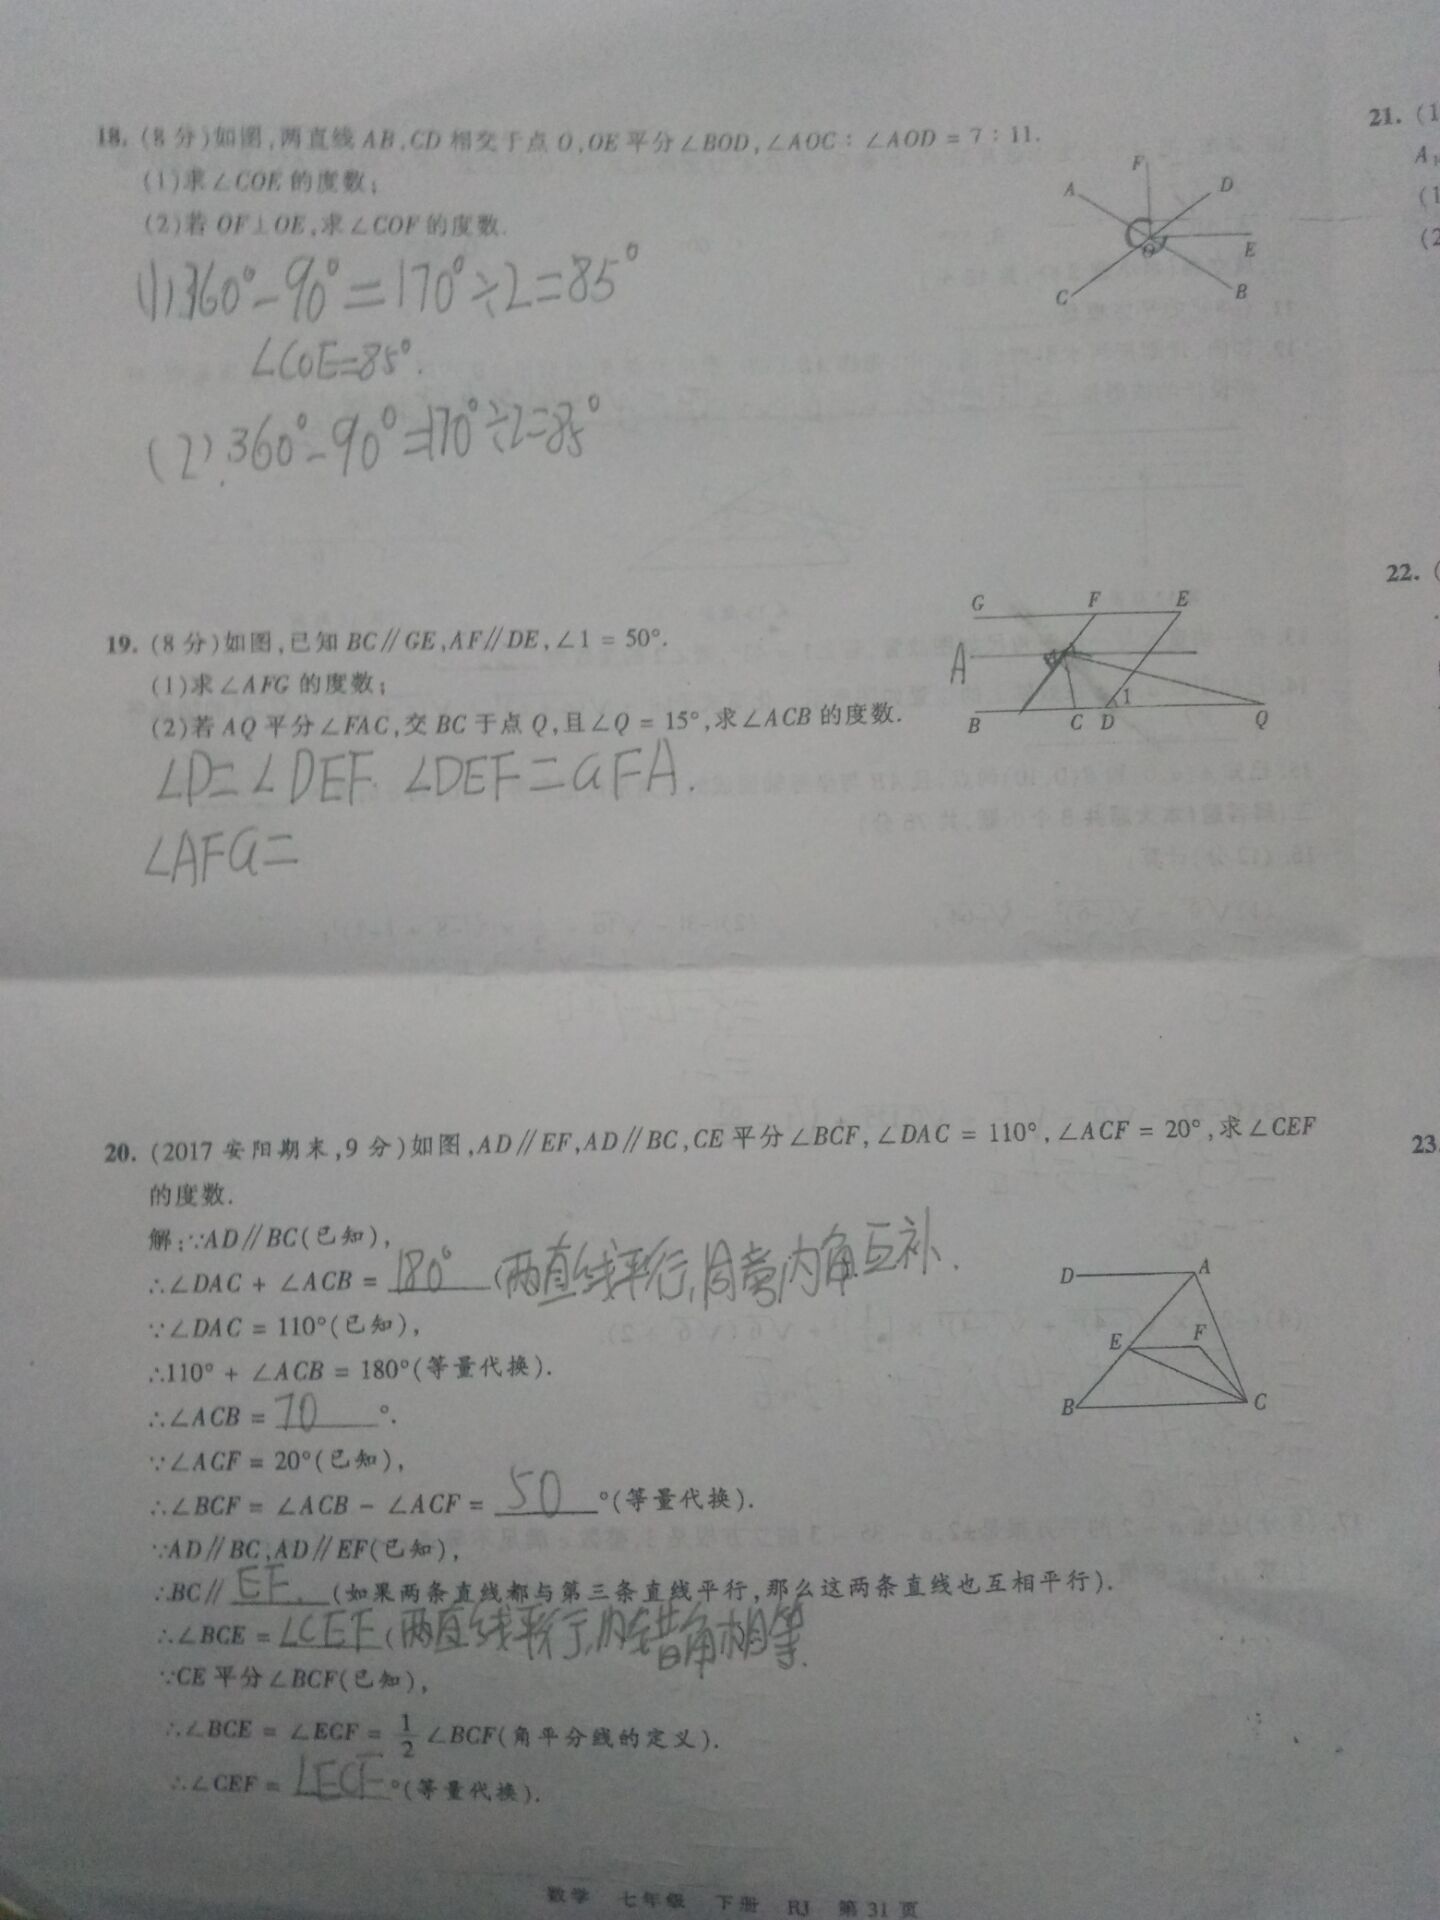 18. (8分)如图,两直线AB,CD相交于点O,OE平分∠BOD,∠AOC∶∠AOD=7∶11.
(1)求∠COE的度数;
(2)若OF⊥OE,求∠COF的度数.
F
A
D
O
E
C
B
(1)360°-90°=170°÷2=85°
∠COE=85°.
(2).360°-90°=170°÷2=85°
19. (8分)如图,已知BC∥GE,AF∥DE,∠1=50°.
(1)求∠AFG的度数;
(2)若AQ平分∠FAC,交BC于点Q,且∠Q=15°,求∠ACB的度数.
G F E
A
1
B C D Q
∠D=∠DEF. ∠DEF=GFA.
∠AFG=
20. (2017安阳期末,9分)如图,AD∥EF,AD∥BC,CE平分∠BCF,∠DAC=110°,∠ACF=20°,求∠CEF
的度数.
解:∵AD∥BC(已知),
∴∠DAC+∠ACB=180°(两直线平行,同旁内角互补.
∵∠DAC=110°(已知),
∴110°+∠ACB=180°(等量代换).
∴∠ACB=70°.
∵∠ACF=20°(已知),
∴∠BCF=∠ACB-∠ACF=50°(等量代换).
∵AD∥BC,AD∥EF(已知),
∴BC∥EF.(如果两条直线都与第三条直线平行,那么这两条直线也互相平行).
∴∠BCE=∠CEF(两直线平行,内错角相等.
∵CE平分∠BCF(已知),
∴∠BCE=∠ECF=1/2∠BCF(角平分线的定义).
∴∠CEF=∠ECF°(等量代换).
D A
E F
B C
数学 七年级 下册 RJ 第31页
21. (1
(1
(2
22. (
23.